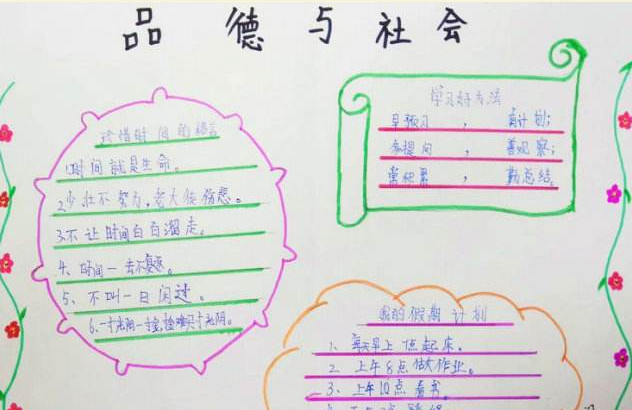 品德与社会
珍惜时间的格言
1.时间就是生命。
2.少壮不努力,老大徒伤悲。
3.不让时间白白溜走。
4、时间一去不复返。
5、不叫一日闲过。
6.一寸光阴一寸金,
寸光阴。
学习好方法
早预习 , 有计划;
多提问 , 善观察;
常积累 , 勤总结。
我的假期计划
1、每天早上 点起床。
2、上午8点做作业。
3、上午10点看书。